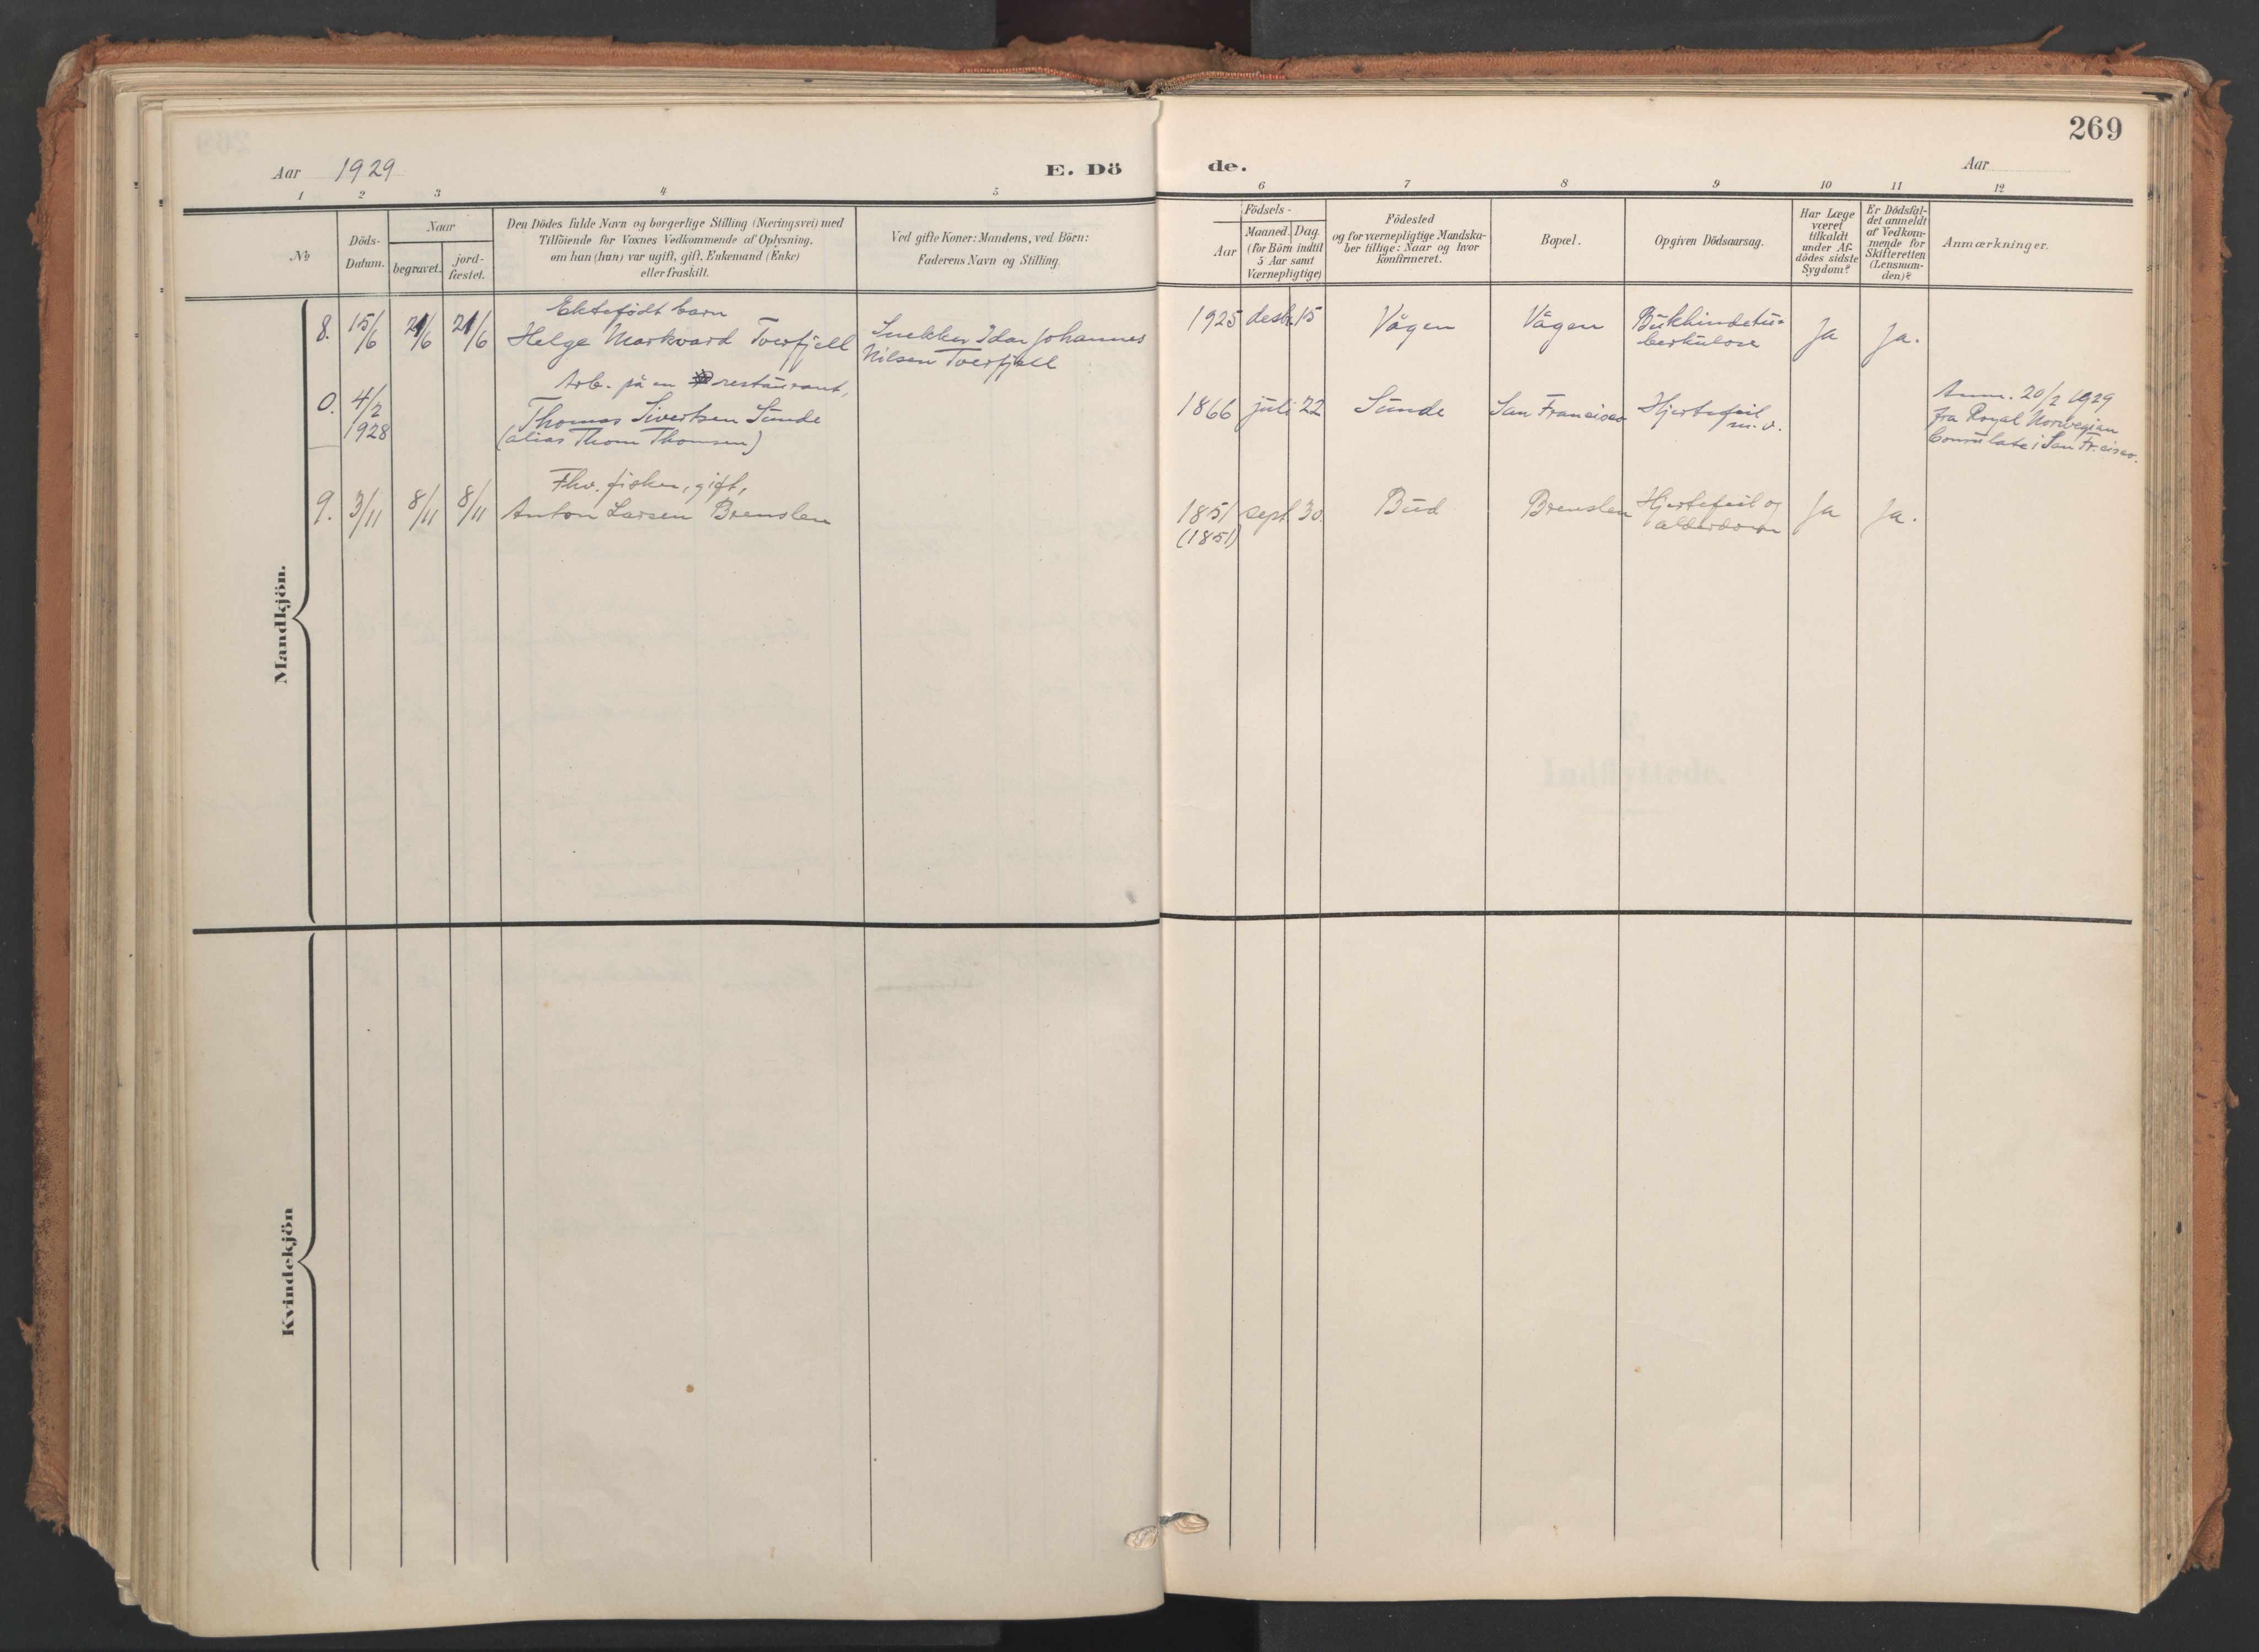 269
Aar 1929
E. Dö
de.
Aar
1 2 3 4 5 6 7 8 9 10 11 12
No
Döds-
Datum.
Naar
begravet.
jord-
fæstet.
Den Dödes fulde Navn og borgerlige Stilling (Næringsvei) med
Tilföiende for Voxnes Vedkommende af Oplysning,
om han (hun) var ugift, gift, Enkemand (Enke)
eller fraskilt.
Ved gifte Koner: Mandens, ved Börn:
Faderens Navn og Stilling.
Födsels-
Aar
Maaned.
Dag.
(for Börn indtil
5 Aar samt
Værnepligtige)
Födested
og for værnepligtige Mandska-
ber tillige: Naar og hvor
konfirmeret.
Bopæl.
Opgiven Dödsaarsag.
Har Læge
været
tilkaldt
under Af-
dödes sidste
Sygdom?
Er Dödsfal-
det anmeldt
af Vedkom-
mende for
Skifteretten
(Lensman-
den)?
Anmærkninger.
Mandkjön.
Ektefødt barn
8. 15/6 21/6 21/6 Helge Markvard Tverfjell
Snekker Idar Johannes
Nilsen Tverfjell
1925 desbr. 15 Vågen Vågen
Bukhindetu-
berkulose
Ja Ja.
Arb. på en restaurant,
0. 4/2
1928
Thomas Sivertsen Sunde
(alias Thom Thomsen)
1866 juli 22 Sunde San Francisco
Hjertefeil
m.v.
Anm. 20/2 1929
fra Royal Norwegian
Consulate i San Fr.cisco.
Fhv. fisker, gift,
9. 3/11 8/11 8/11 Anton Larsen Brenslen
1851 sept. 30. Bud Brenslen
(1851)
Hjertefeil og
alderdom
Ja Ja.
Kvindekjön
Indflyttede.